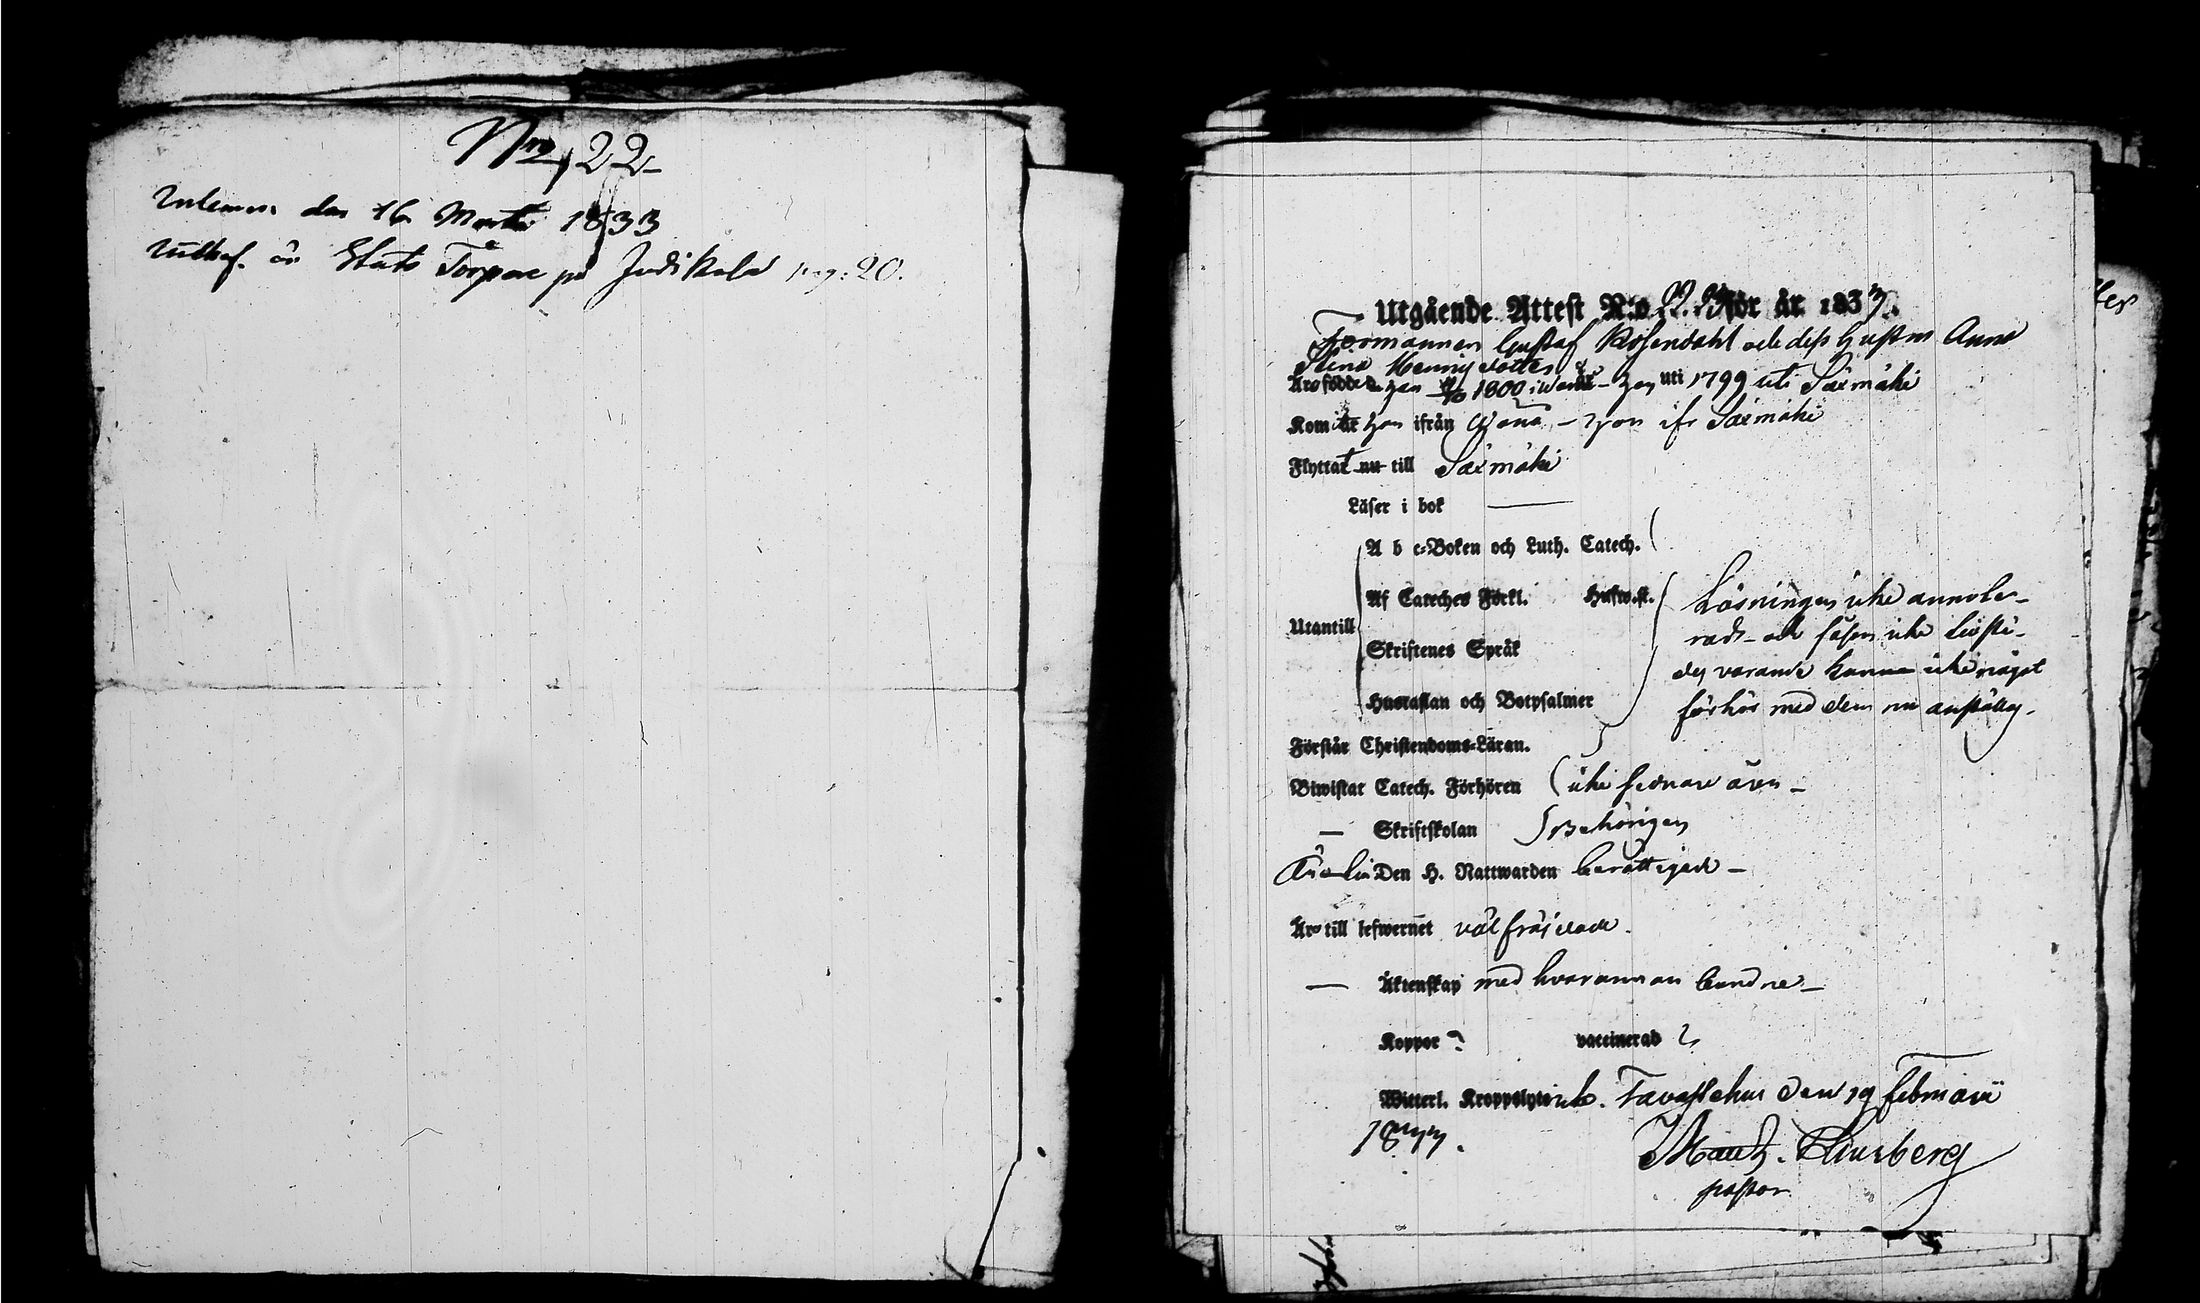 Nro 22
Inlemn. den 16 Martii 1833
Stats Torpare på Judikala pag: 20.
Utgående Attest N:o för år 1833.
Formannen Gustaf Rosendahl och dess hustru Anna
Stina Hennigsdotter
Äro födde han 1800 i Wånå - hon uti 1799 uti Säxmäki
Kom är han ifrån Wånå - hon ifr Säxmäki
Flyttat nu till Säxmäki
Läser i bok
A b c-Boken och Luth. Catech.
Af Cateches Förkl. Husw.st.
Utantill
Skriftenes Språk
Hustaflan och Botpsalmer
Läsningen icke annoterad - och icke
varande kunna icke något
förhör med dem nu anställas.
Förstår Christendoms-Läran.
Biwistat Catech. Förhören icke sednare åren -
— Skriftskolan Behörigen
Den H. Nattwarden berättigade -
Äro till lefwernet välfräjdade.
— Äktenskap med hvarannan bundne -
Koppor ? vaccinerad ?
Witterl. Kroppslyte Tavastehus den 19 Februarii
1833.
pastor